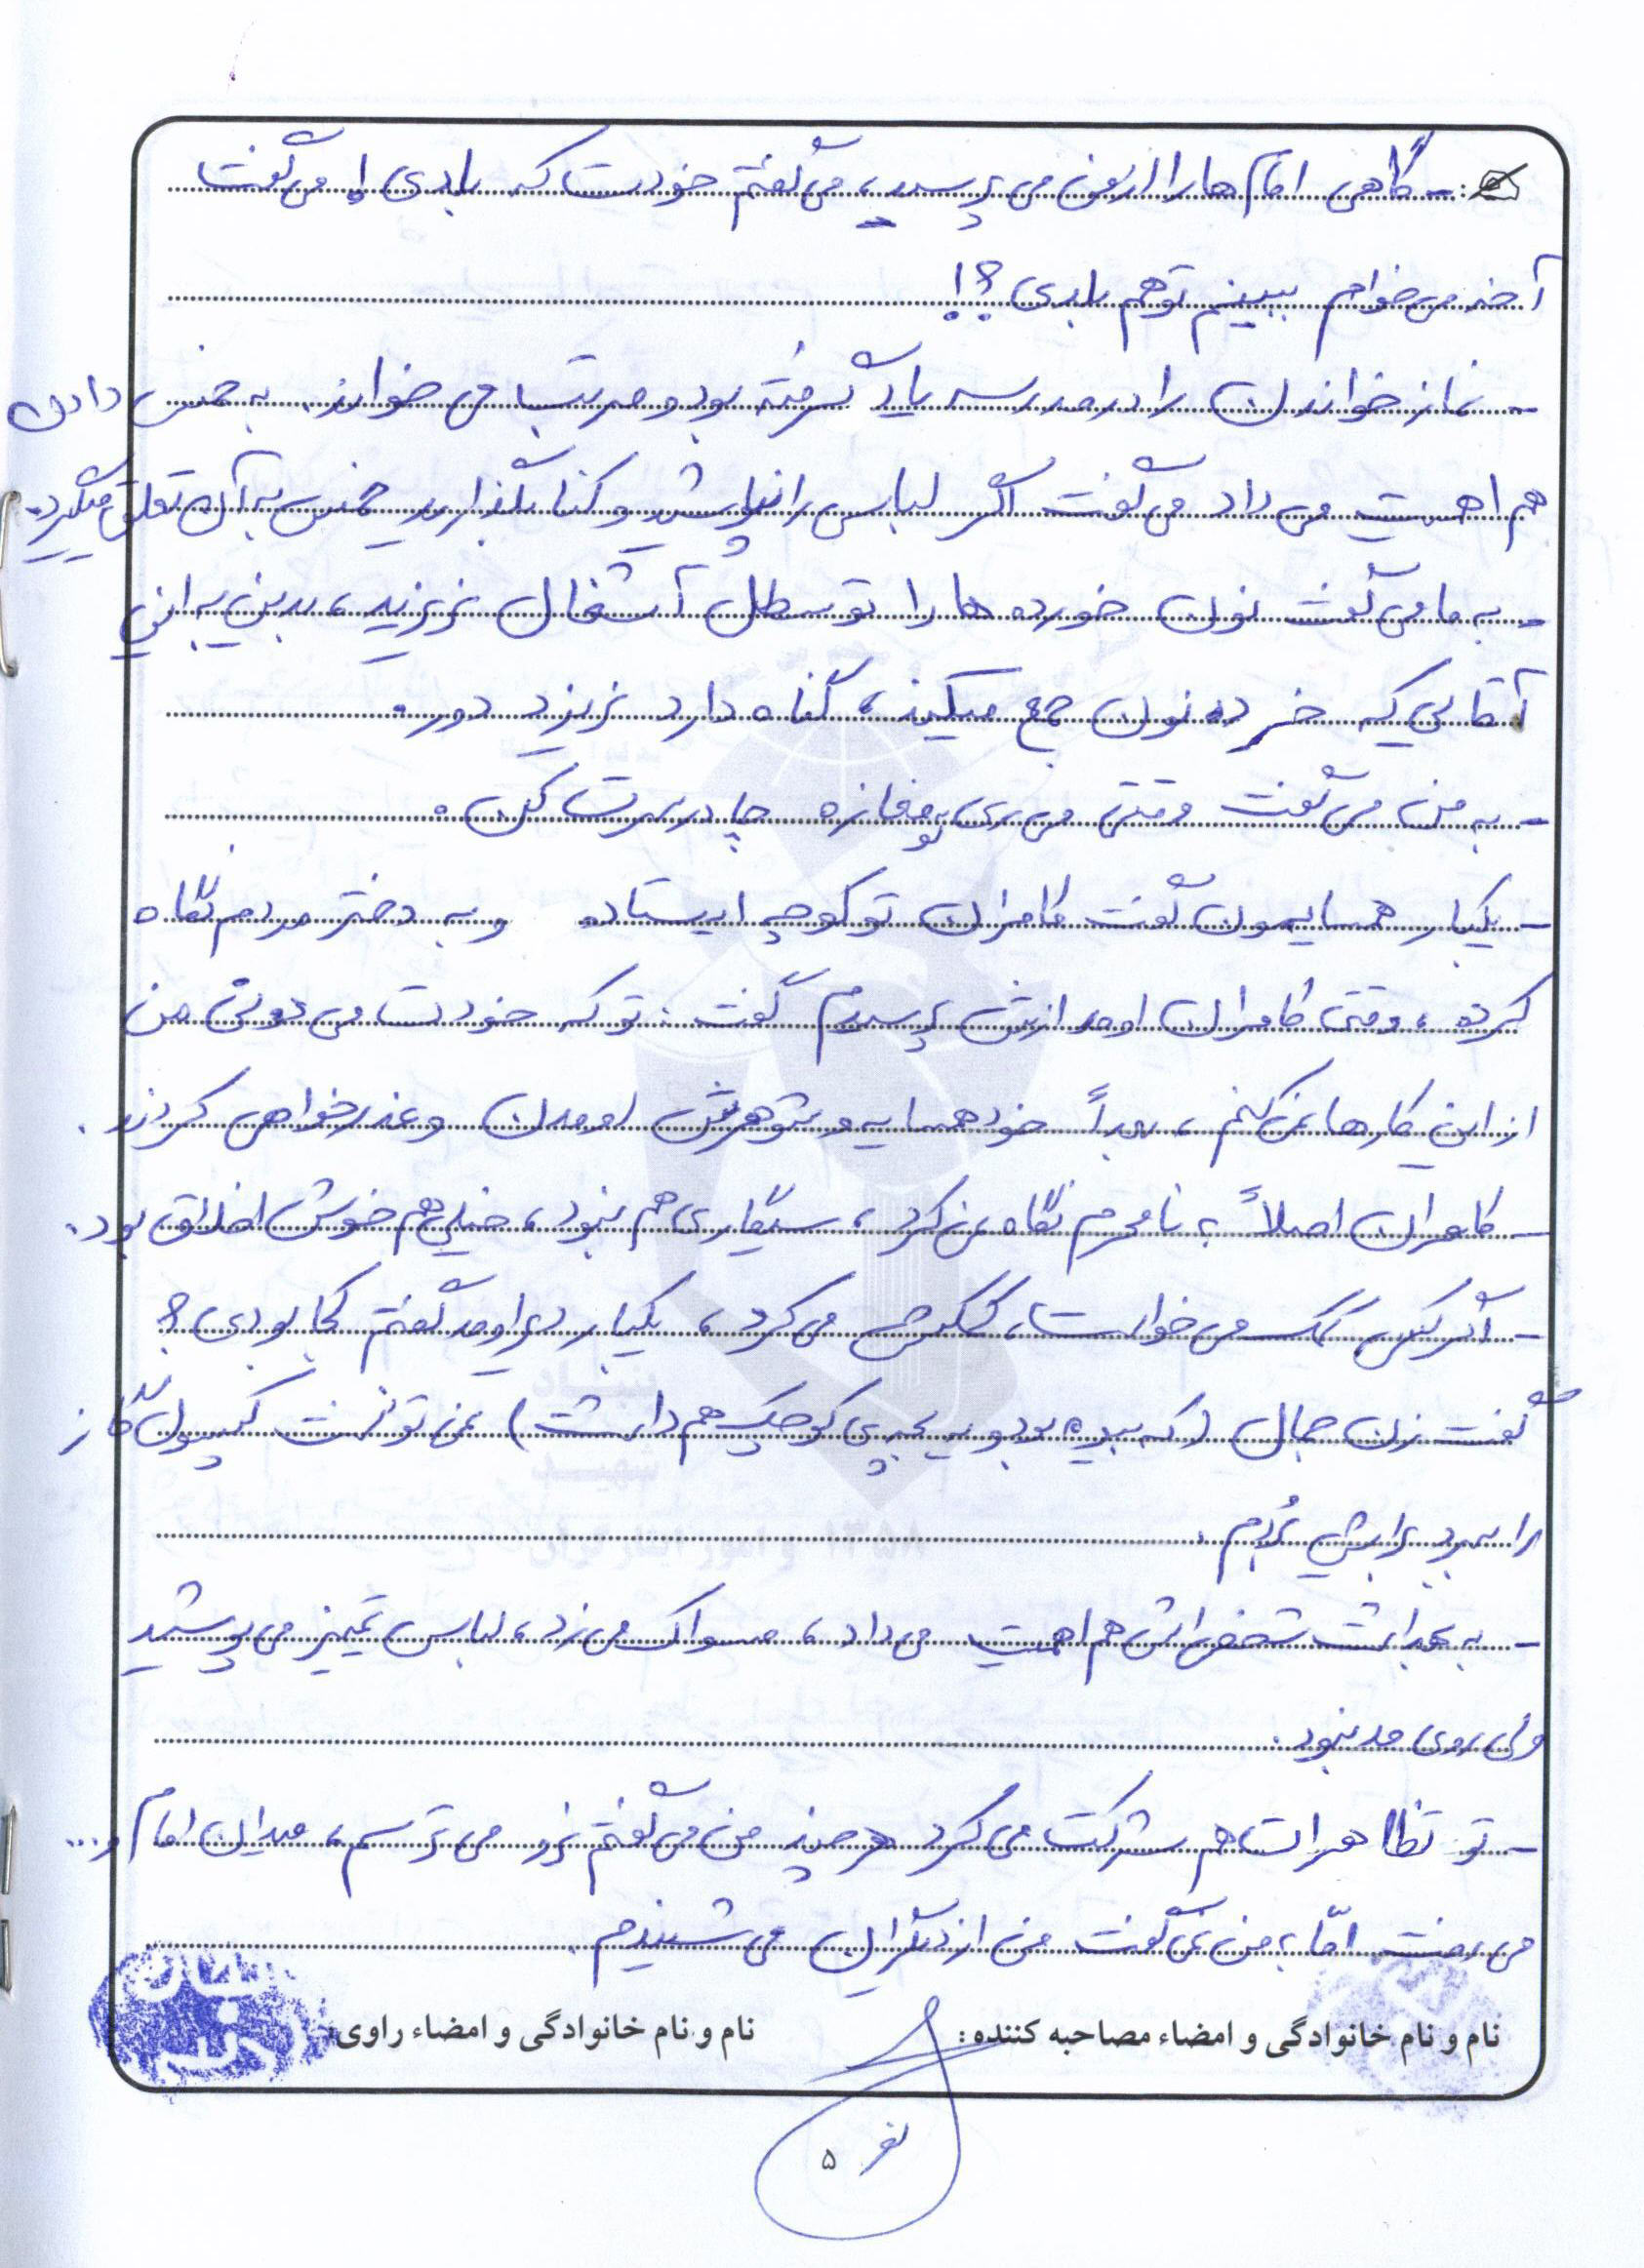 - گاهی امام‌ها را ازمن می پرسید، می گفتم خودت که بلدی! می گفت
آخه می خوام ببینم تو هم بلدی؟!
- نماز خواندن را در مدرسه یاد گرفته بود و مرتب می خواند. به خمس دادن
هم اهمیت می داد می گفت اگر لباس را نپوشید و کنار بگذارید خمس به آن تعلق میگیرد.
- به ما می گفت نون خورده ها را تو سطل آشغال نریزید، بدین به این
آقایی که خرده نون جمع میکند، گناه دارد نریزید دور.
- به من می گفت وقتی می ری مغازه چادر سرت کن.
- یکبار همسایمون گفت کامران تو کوچه ایستاده و به دختر مردم نگاه
کرده، وقتی کامران اومد ازش پرسیدم گفت: تو که خودت می دونی من
از این کارها نمی کنم، بعداً خود همسایه و شوهرش اومدن و عذرخواهی کردند.
- کامران اصلاً به نامحرم نگاه نمی کرد، سیگاری هم نبود، خیلی هم خوش اخلاق بود.
- اگر کسی کمک می خواست، کمکش می کرد، یکبار دیر اومد گفتم کجا بودی؟
گفت زن جمال (که بیوه بود و یه بچه ی کوچک هم داشت) نمی تونست کپسول گاز
را ببرد برایش بردم.
- به بهداشت شخصی اش هم اهمیت می داد، مسواک می زد، لباس تمیز می پوشید
ولی روی مد نبود.
- تو تظاهرات هم شرکت می کرد هر چند من می گفتم نرو می ترسم، میدان امام و...
می رفت اما به من نمی گفت من از دیگران می شنیدم.
نام و نام خانوادگی و امضاء مصاحبه کننده: نام و نام خانوادگی و امضاء راوی:
۵